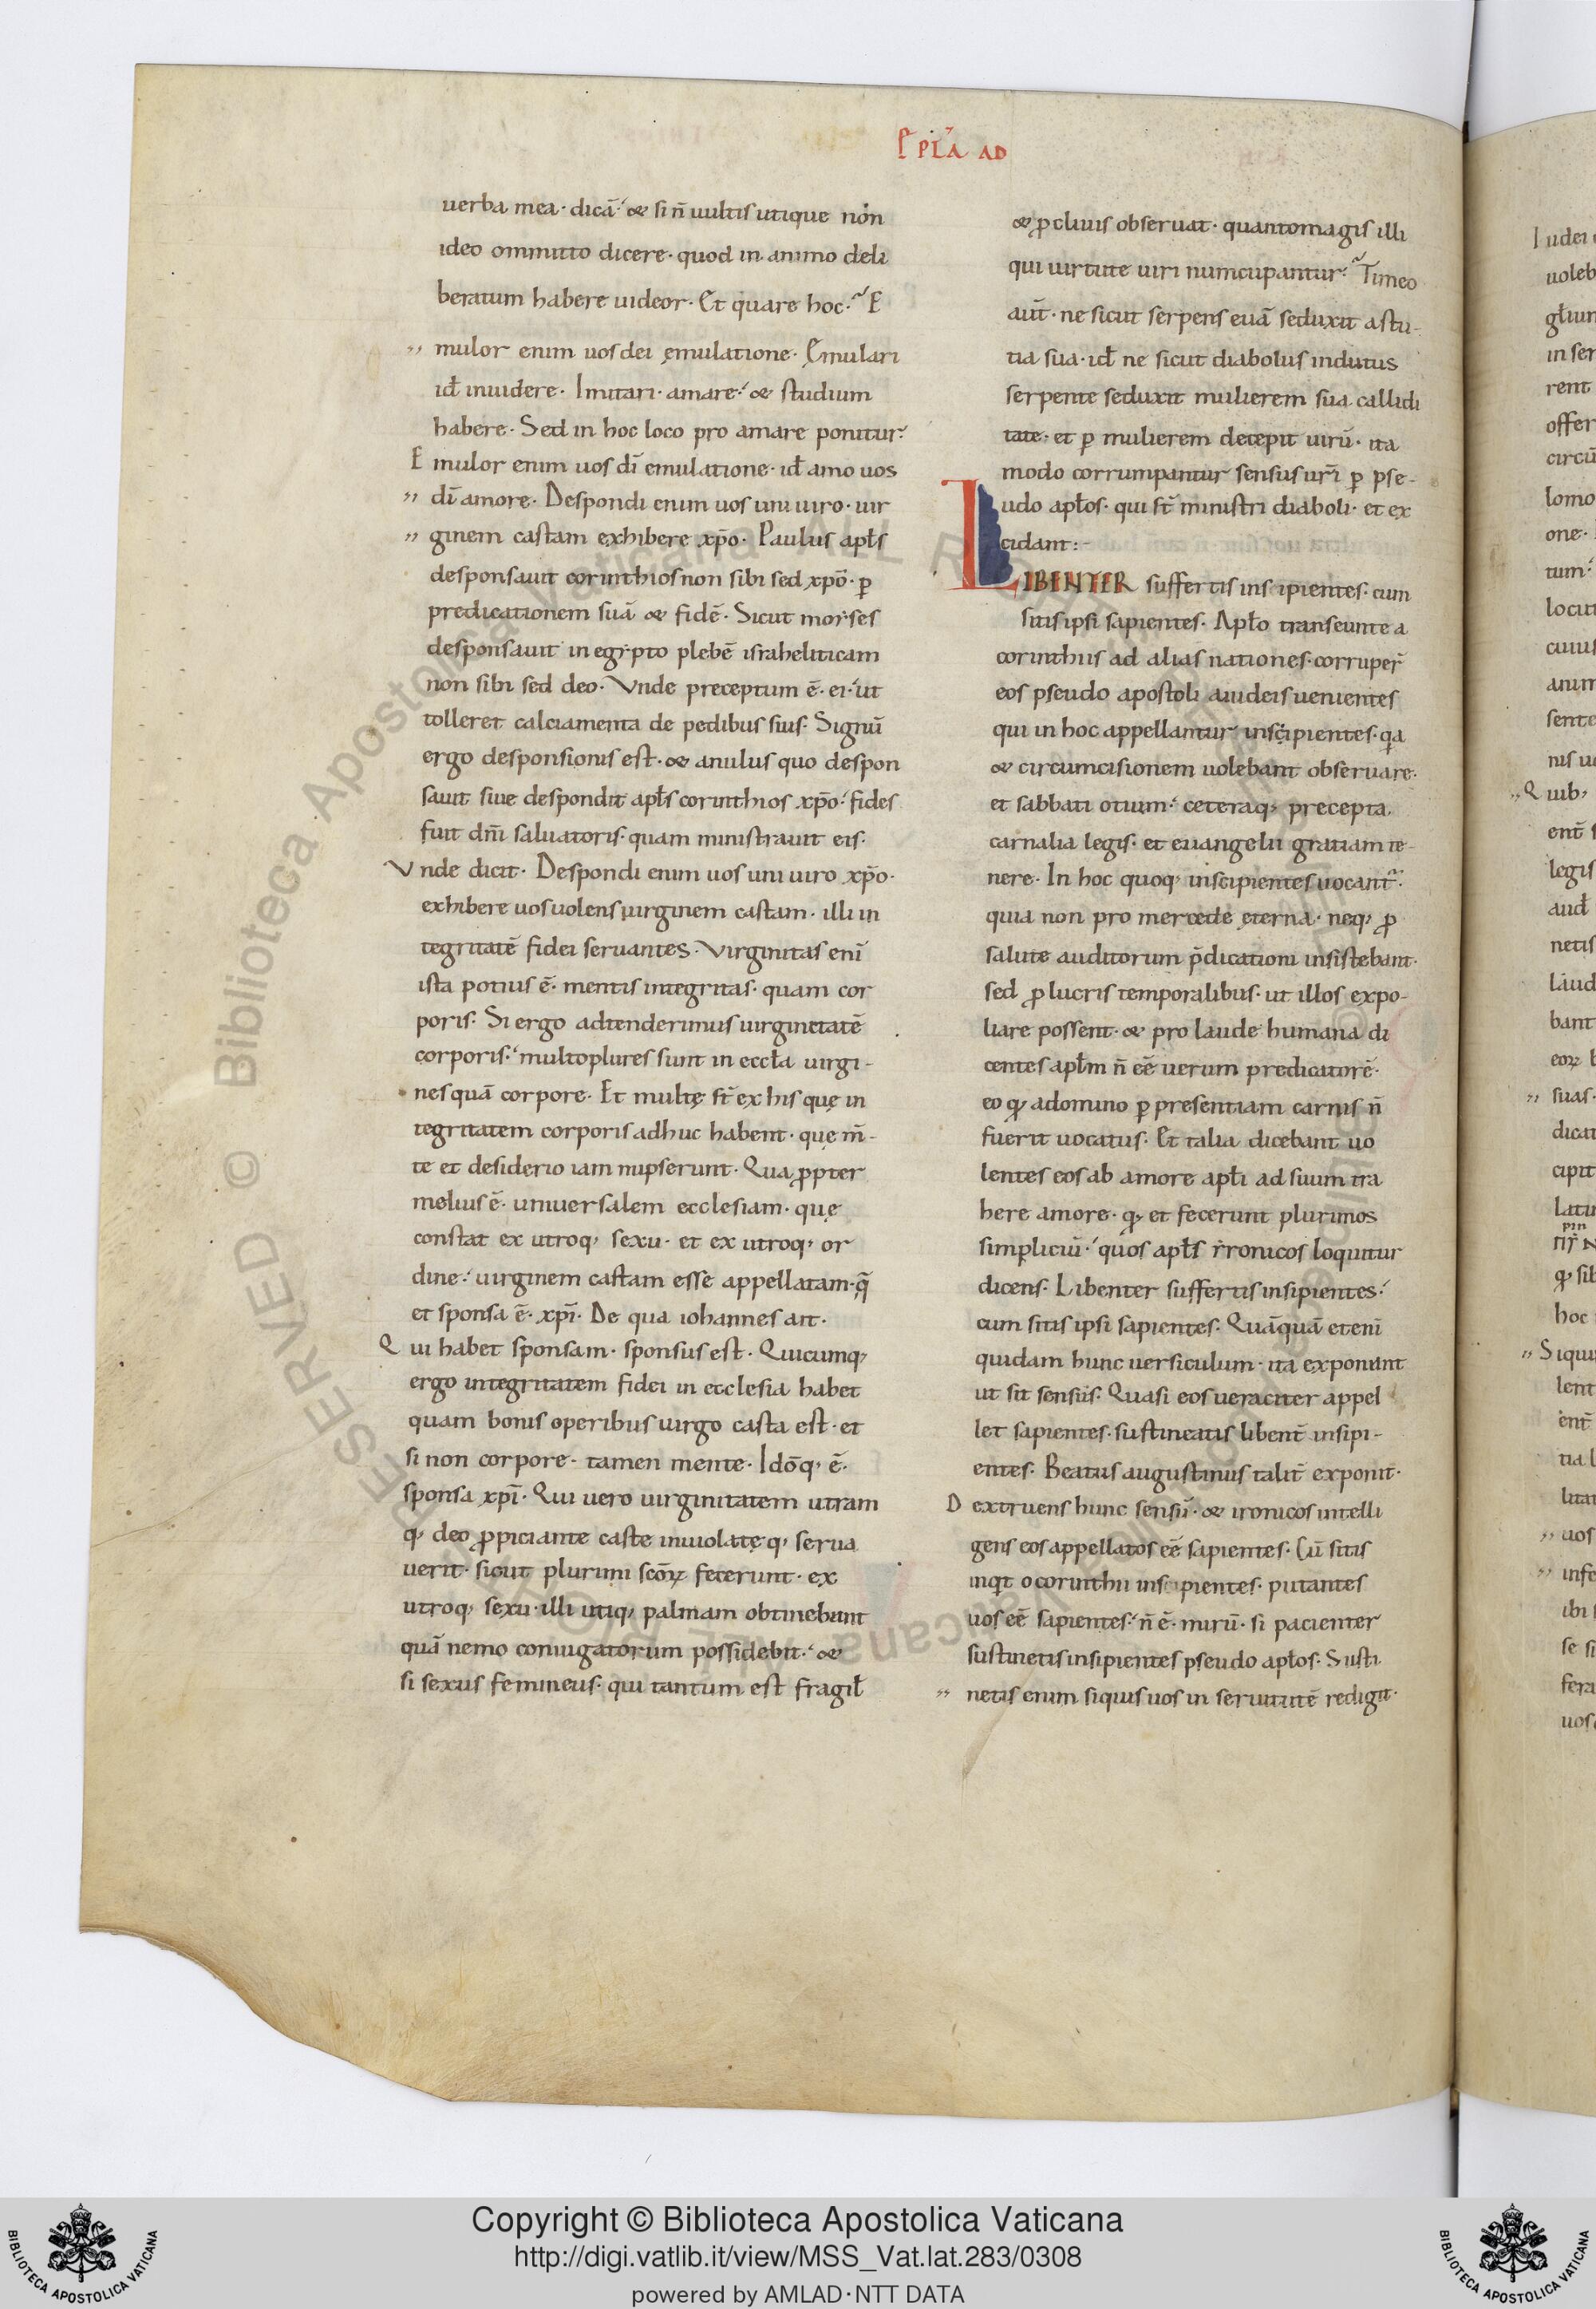 EPLA AD
uerba mea· dicā· & si n̄ uultis utique non
ideo ommitto dicere· quod in animo deli
beratum habere uideor· Et quare hoc· E
mulor enim uos dei ęmulatione· Emulari
id̄ inuidere· Imitari· amare· & studium
habere· Sed in hoc loco pro amare ponitur·
E mulor enim uos dī emulatione· id̄ amo uos
dī amore· Despondi enim uos uni uiro· uir
ginem castam exhibere xp̄o· Paulus apl̄s
desponsauit corinthios non sibi sed xp̄o· ꝑ
predicationem suā & fidē· Sicut moyses
desponsauit in egypto plebē israheliticam
non sibi sed deo· Vnde preceptum ē· ei· ut
tolleret calciamenta de pedibus suis· Signū
ergo desponsionis est· & anulus quo despon
sauit siue despondit apl̄s corinthios xp̄o· fides
fuit dn̄i saluatoris· quam ministrauit eis·
Vnde dicit· Despondi enim uos uni uiro xp̄o·
exhibere uos uolens uirginem castam· illi in
tegritatē fidei seruantes· Virginitas enī
ista potius ē· mentis integritas· quam cor
poris· Si ergo adtenderimus uirginitatē
corporis· multo plures sunt in eccl̄a uirgi-
nes quā corpore· Et multę st̄ ex his quę in
tegritatem corporis adhuc habent· que m̄-
te et desiderio iam nupserunt· Qua ꝓpter
melius ē· uniuersalem ecclesiam· quę
constat ex utroq; sexu· et ex utroq; or
dine· uirginem castam esse appellatam· q̄
et sponsa ē· xp̄i· De qua iohannes ait·
Qui habet sponsam· sponsus est· Quicumq;
ergo integritatem fidei in ecclesia habet
quam bonis operibus uirgo casta est· et
si non corpore· tamen mente· Idōq; ē·
sponsa xp̄i· Qui uero uirginitatem utram
q; deo ꝓpiciante caste inuiolateq; serua
uerit· sicut plurimi scōꝝ fecerunt· ex
utroq; sexu· illi utiq; palmam obtinebunt
quā nemo coniugatorum possidebit· &
si sexus femineus· qui tantum est fragil̄
& ꝓcliuis obseruat· quantomagis illi
qui uirtute uiri nuncupantur· Timeo
aūt· ne sicut serpens euā seduxit astu-
tia sua· id̄ ne sicut diabolus indutus
serpente seduxit mulierem sua callidi
tate· et ꝑ mulierem decepit uirū· ita
modo corrumpantur sensus ur̄i ꝑ pse-
udo apl̄os· qui st̄ ministri diaboli· et ex
cidant:-
LIBENTER suffertis insipientes· cum
sitis ipsi sapientes· Apl̄o transeunte a
corinthiis ad alias nationes· corruper̄
eos pseudo apostoli a iudeis uenientes
qui in hoc appellantur inscipientes· qa
& circumcisionem uolebant obseruare·
et sabbati otium· ceteraq; precepta
carnalia legis· et euangelii gratiam te-
nere· In hoc quoq; inscipientes uocant̄·
quia non pro mercede ęterna· neq; ꝓ
salute auditorum p̄dicationi insistebant·
sed ꝓ lucris temporalibus· ut illos expo-
liare possent· & pro laude humana di
centes apl̄m n̄ eē uerum predicatorē·
eo qꝫ a domino ꝑ presentiam carnis n̄
fuerit uocatus· Et talia dicebant uo
lentes eos ab amore apl̄i ad suum tra
here amore· qꝫ et fecerunt plurimos
simpliciū· quos apl̄s yronicos loquitur
dicens· Libenter suffertis insipientes·
cum sitis ipsi sapientes· Quāquā etenī
quidam hunc uersiculum· ita exponant
ut sit sensus· Quasi eos ueraciter appel
let sapientes· sustineatis libent̄ insipi-
entes· Beatus augustinus talit̄ exponit·
D extruens hunc sensū· & ironicos intelli
gens eos appellatos eē sapientes· Cū sitis
inqt o corinthii inscipientes· putantes
uos eē sapientes· n̄ ē· mirū· si pacienter
sustinetis insipientes pseudo apl̄os· Susti
netis enim siquis uos in seruitutē redigit·
Copyright © Biblioteca Apostolica Vaticana
http://digi.vatlib.it/view/MSS_Vat.lat.283/0308
powered by AMLAD·NTT DATA